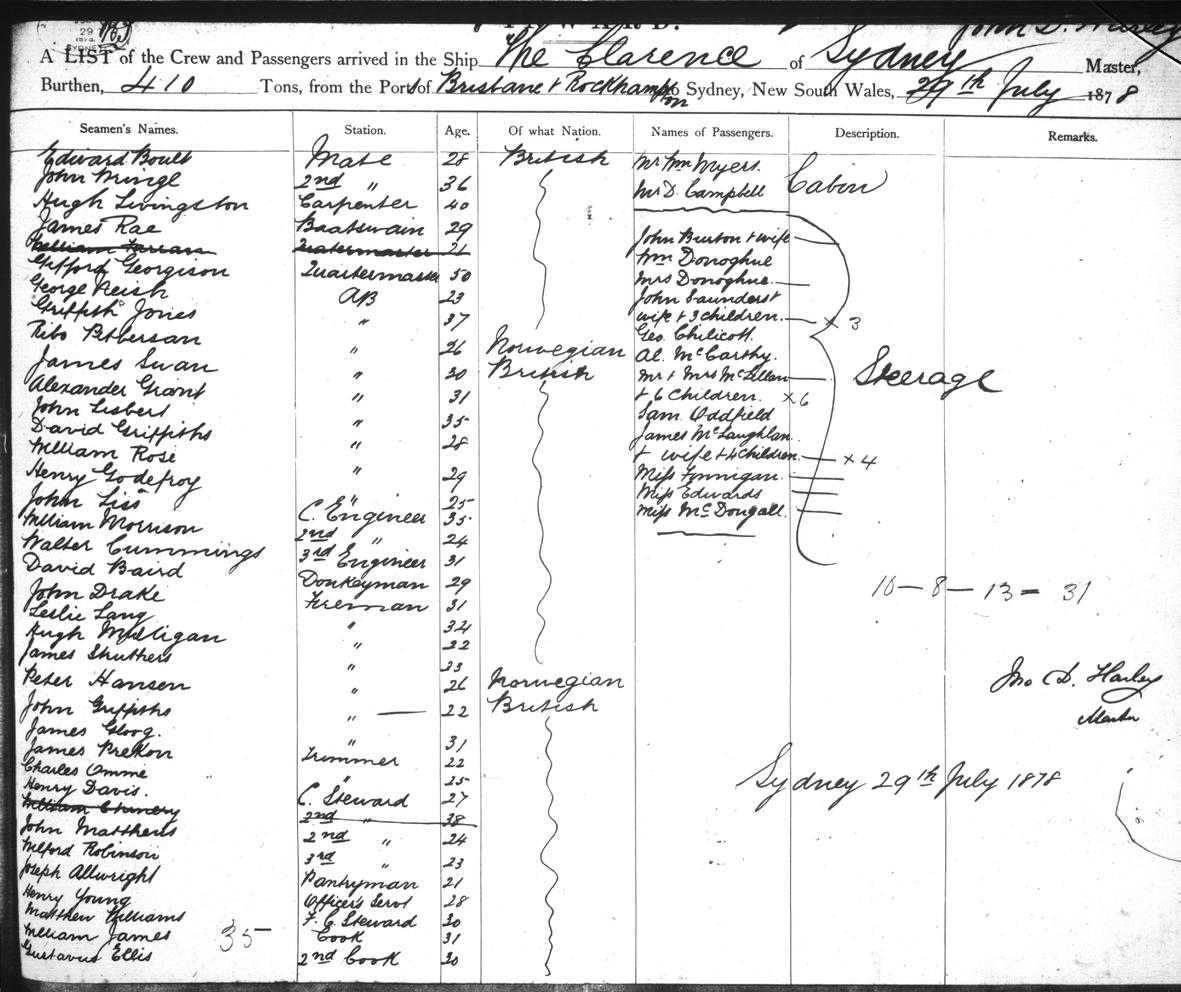 29
SYDNEY
John D.
A LIST of the Crew and Passengers arrived in the Ship The Clarence of Sydney Master,
Burthen, 410 Tons, from the Ports of Brisbane & Rockhampton to Sydney, New South Wales, 29th July 1878
Seamen's Names. Station. Age. Of what Nation. Names of Passengers. Description. Remarks.
Edward Boult Mate 28 British
John Pringle 2nd " 36
Hugh Livingston Carpenter 40
James Rae Boatswain 29
William Farran Quatermaster 21
Gifford Georgison Quartermaster 50
George Reish AB 23
Griffith Jones " 37
Ribo Petersan " 26 Norwegian
James Swan " 30 British
Alexander Grant " 31
John Lisbert " 35
David Griffiths " 28
William Rose "
Henry Godefroy " 29
John Liss " 25
William Morrison C. Engineer 35
Walter Cummings 2nd " 24
David Baird 3rd Engineer 31
John Drake Donkeyman 29
Leslie Lang Fireman 31
Hugh Mulligan " 34
James Struthers " 22
Peter Hansen " 26 Norwegian
John Griffiths " 22 British
James Gloog. " 31
James Prekon Trimmer 22
Charles Omme " 25
Henry Davis. C. Steward 27
William Chinery 2nd " 38
John Matthews 2nd " 24
Milford Robinson 3rd " 23
Joseph Allwright Pantryman 21
Henry Young Officer's Servt 28
Matthew Williams F. C. Steward 30
William James Cook 31
Gustavus Ellis 2nd Cook 20
35
Mr Wm Myers.
Mr D. Campbell
Cabin
John Burton & wife
Wm Donoghue
Mrs Donoghue
John Saunders &
wife & 3 children. x 3
Geo. Chilicott.
Al. McCarthy.
Mr & Mrs McLellan
& 6 Children. x 6
Sam. Oddfield
James McLaughlan
& wife & 4 Children. x 4
Miss Finnigan
Miss Edwards
Miss McDougall.
Steerage
10 - 8 - 13 - 31
Jno D. Harley
Master
Sydney 29th July 1878